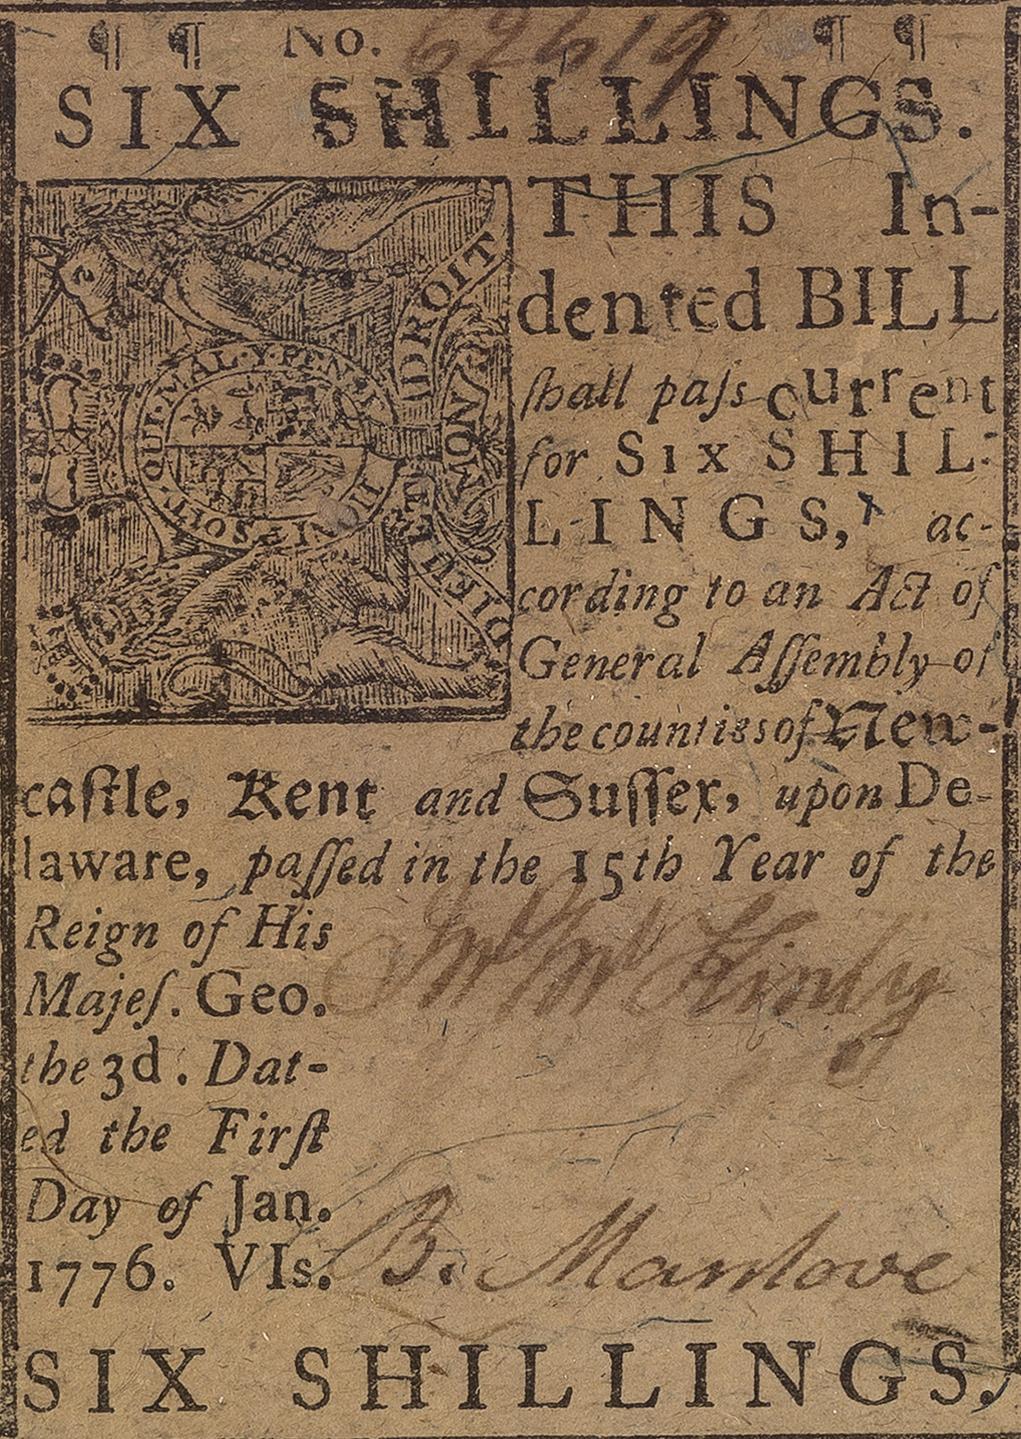 ¶ ¶ No. 62619 ¶ ¶
SIX SHILLINGS.
THIS In-
dented BILL
ſhall paſs current
for SIX SHIL-
LINGS, ac-
cording to an Act of
General Aſſembly of
the counties of New-
caſtle, Kent and Suſſex, upon De-
laware, paſſed in the 15th Year of the
Reign of His
Majeſ. Geo.
the 3d. Dat-
ed the Firſt
Day of Jan.
1776. VIs.
HONI·SOIT·QUI·MAL·Y·PENSE
DIEU ET MON DROIT
Jno McKinly
B. Manlove
SIX SHILLINGS.